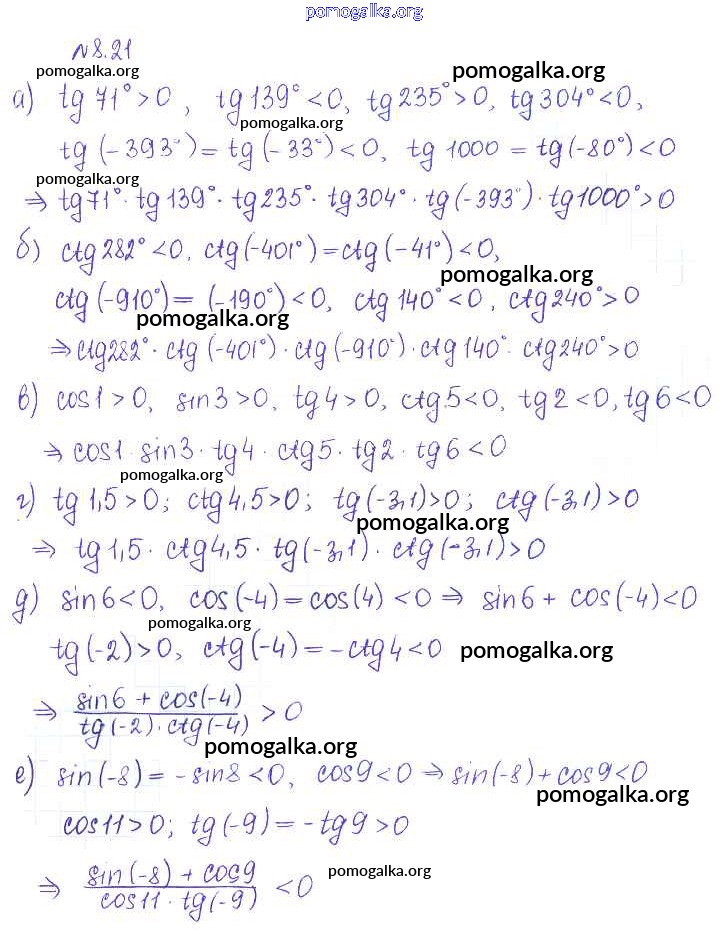 pomogalka.org
№8.21
pomogalka.org pomogalka.org
а) tg 71° > 0, tg 139° < 0, tg 235° > 0, tg 304° < 0,
pomogalka.org
tg (-393°) = tg (-33°) < 0, tg 1000 = tg (-80°) < 0
pomogalka.org
⇒ tg 71° · tg 139° · tg 235° · tg 304° · tg (-393°) · tg 1000° > 0
б) ctg 282° < 0, ctg (-401°) = ctg (-41°) < 0,
pomogalka.org
ctg (-910°) = (-190°) < 0, ctg 140° < 0, ctg 240° > 0
pomogalka.org
⇒ ctg 282° · ctg (-401°) · ctg (-910°) · ctg 140° · ctg 240° > 0
в) cos 1 > 0, sin 3 > 0, tg 4 > 0, ctg 5 < 0, tg 2 < 0, tg 6 < 0
⇒ cos 1 · sin 3 · tg 4 · ctg 5 · tg 2 · tg 6 < 0
pomogalka.org
г) tg 1,5 > 0; ctg 4,5 > 0; tg (-3,1) > 0; ctg (-3,1) > 0
pomogalka.org
⇒ tg 1,5 · ctg 4,5 · tg (-3,1) · ctg (-3,1) > 0
д) sin 6 < 0, cos (-4) = cos (4) < 0 ⇒ sin 6 + cos (-4) < 0
pomogalka.org
tg (-2) > 0, ctg (-4) = -ctg 4 < 0 pomogalka.org
sin 6 + cos (-4)
⇒ > 0
tg (-2) · ctg (-4)
pomogalka.org
е) sin (-8) = -sin 8 < 0, cos 9 < 0 ⇒ sin (-8) + cos 9 < 0
pomogalka.org
cos 11 > 0; tg (-9) = -tg 9 > 0
sin (-8) + cos 9
⇒ < 0 pomogalka.org
cos 11 · tg (-9)